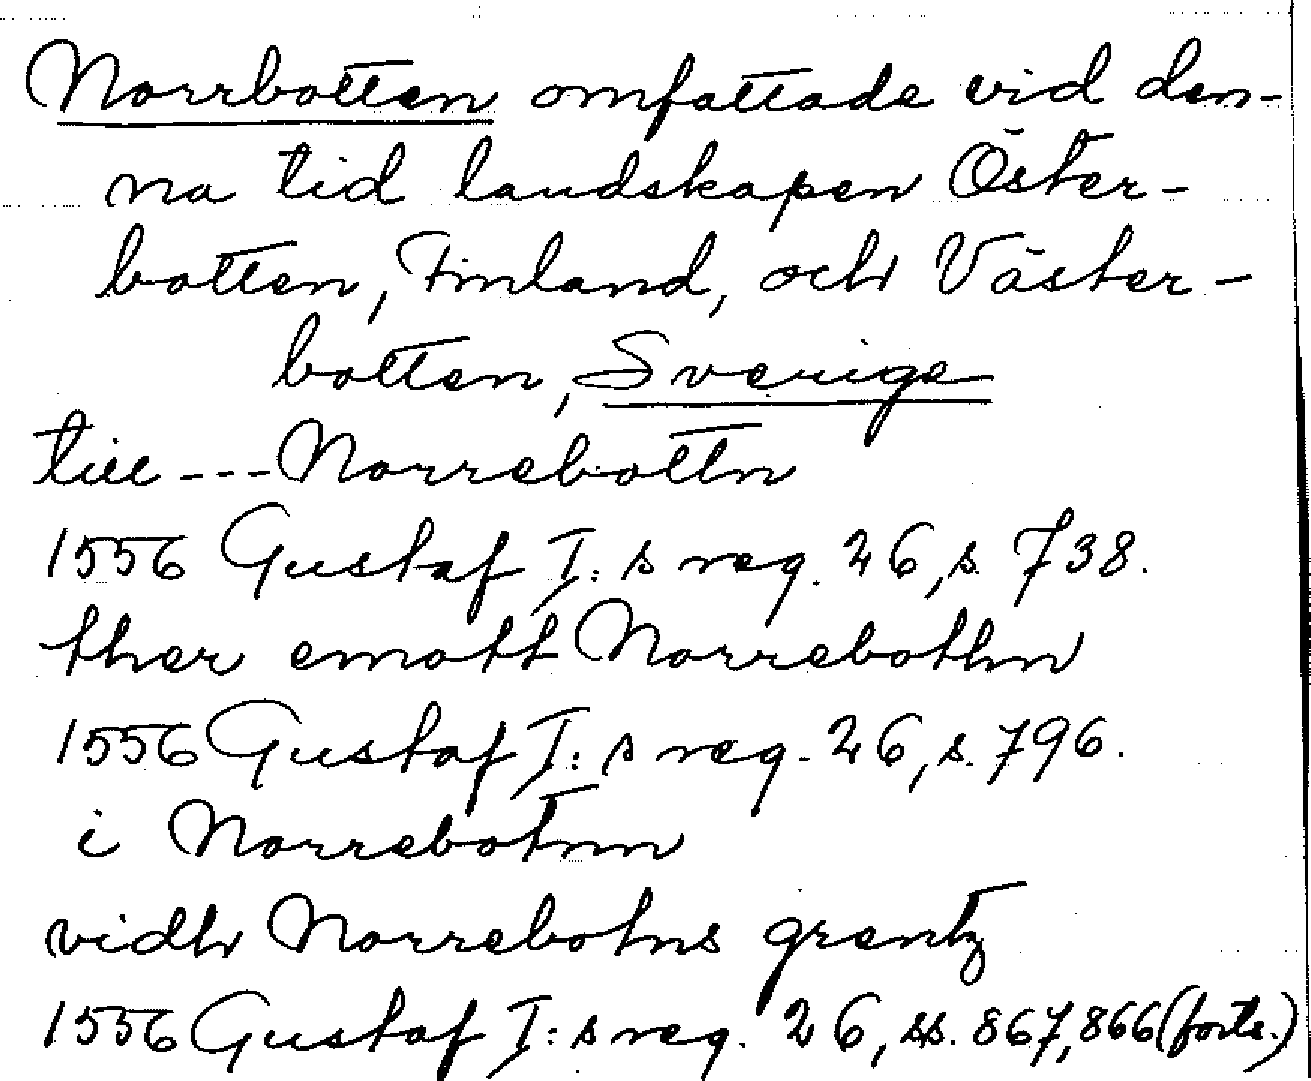 Norrbotten omfattade vid den-
na tid landskapen Öster-
botten, Finland, och Väster-
botten, Sverige
till --- Norrebottn
1556 Gustaf I:s reg. 26, s. 738.
ther emott Norrebothn
1556 Gustaf I:s reg. 26, s. 796.
i Norrebotnn
vidh Norrebotns grentz
1556 Gustaf I:s reg. 26, ss. 867, 866 (forts.)